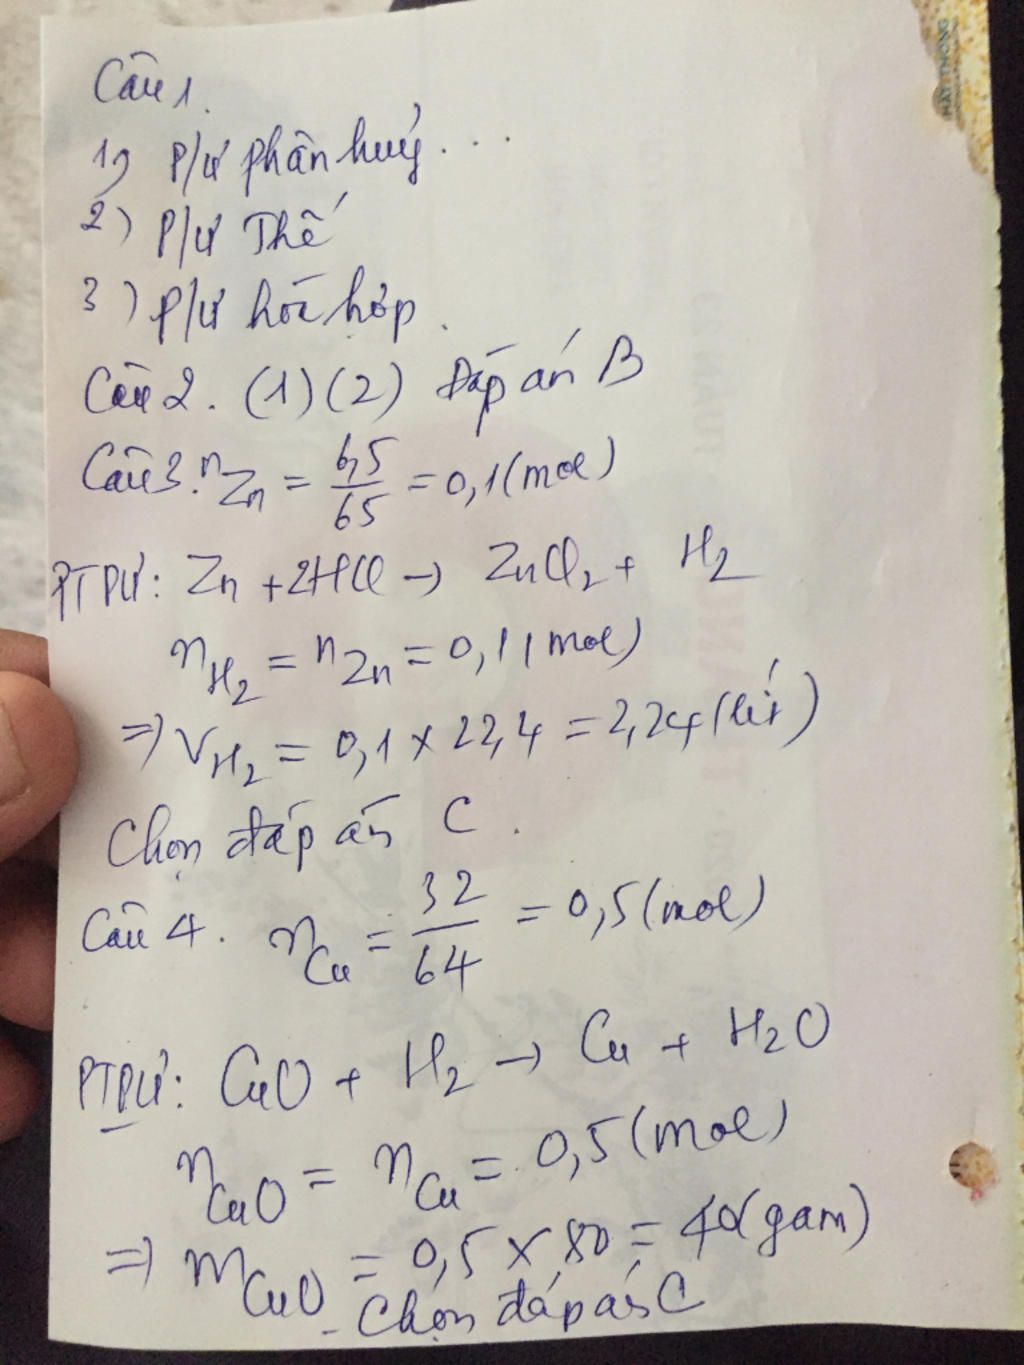 Câu 1.
1) P/ư phân huỷ...
2) P/ư Thế
3) P/ư hóa hợp.
Câu 2. (1)(2) Đáp án B
Câu 3. nZn = 6,5/65 = 0,1(mol)
PTPƯ: Zn + 2HCl → ZnCl2 + H2
nH2 = nZn = 0,1(mol)
=> VH2 = 0,1 x 22,4 = 2,24(lít)
Chọn đáp án C.
Câu 4. nCu = 32/64 = 0,5(mol)
PTPƯ: CuO + H2 → Cu + H2O
nCuO = nCu = 0,5(mol)
=> mCuO = 0,5 x 80 = 40(gam)
- Chọn đáp án C